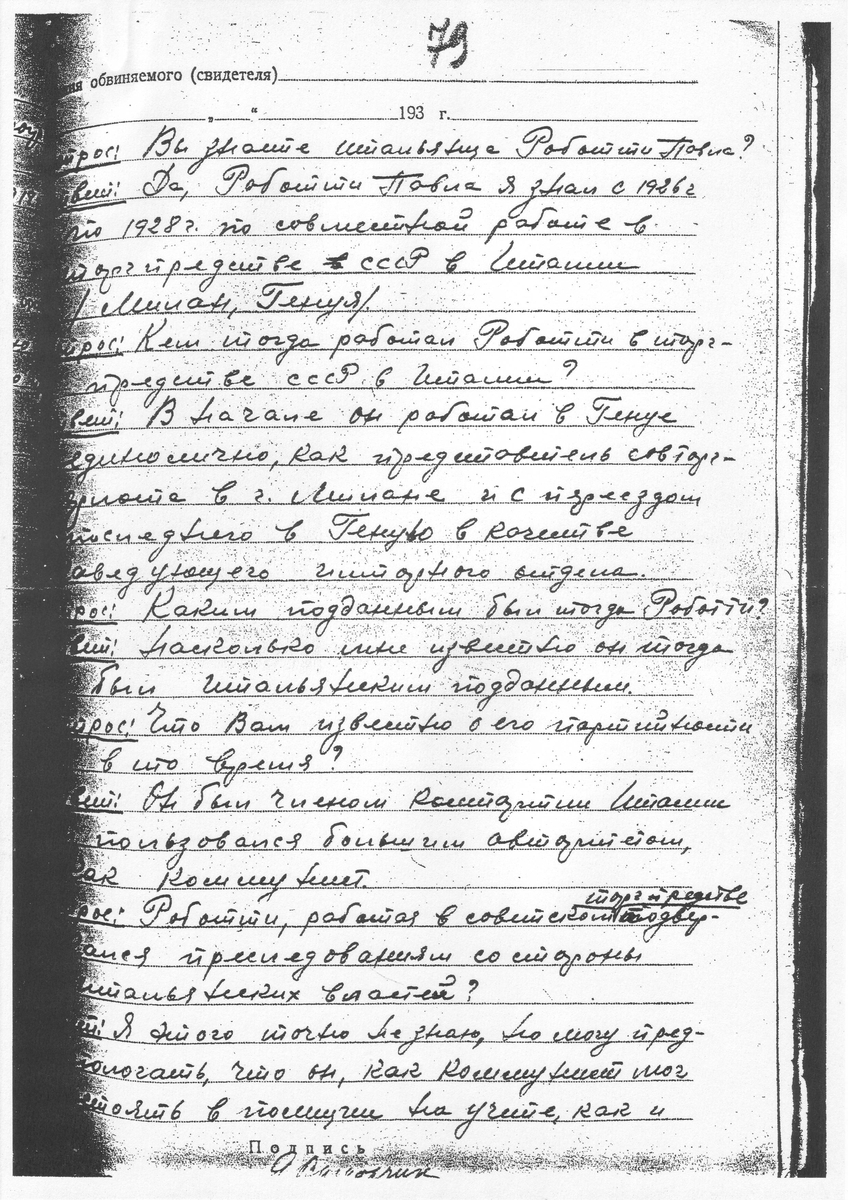 79
ия обвиняемого (свидетеля)
„ “ 193 г.
прос: Вы знаете итальянца Роботти Павла?
вет: Да, Роботти Павла я знал с 1926г
по 1928г. по совместной работе в
торгпредстве СССР в Италии
/Милан, Генуя/.
прос: Кем тогда работал Роботти в торг-
предстве СССР в Италии?
вет: В начале он работал в Генуе
единолично, как представитель совторг-
флота в г. Милане и с переездом
последнего в Геную в качестве
аведующего импортного отдела.
прос: Каким подданным был тогда Роботти?
вет: Насколько мне известно он тогда
был итальянским подданным.
прос: Что Вам известно о его партийности
в то время?
вет: Он был членом компартии Италии
пользовался большим авторитетом,
как коммунист.
торгпредстве
рос: Роботти, работая в советском подвер-
ался преследованиям со стороны
итальянских властей?
ет: Я этого точно не знаю, но могу пред-
пологать, что он, как коммунист мог
стоять в полиции на учете, как и
Подпись